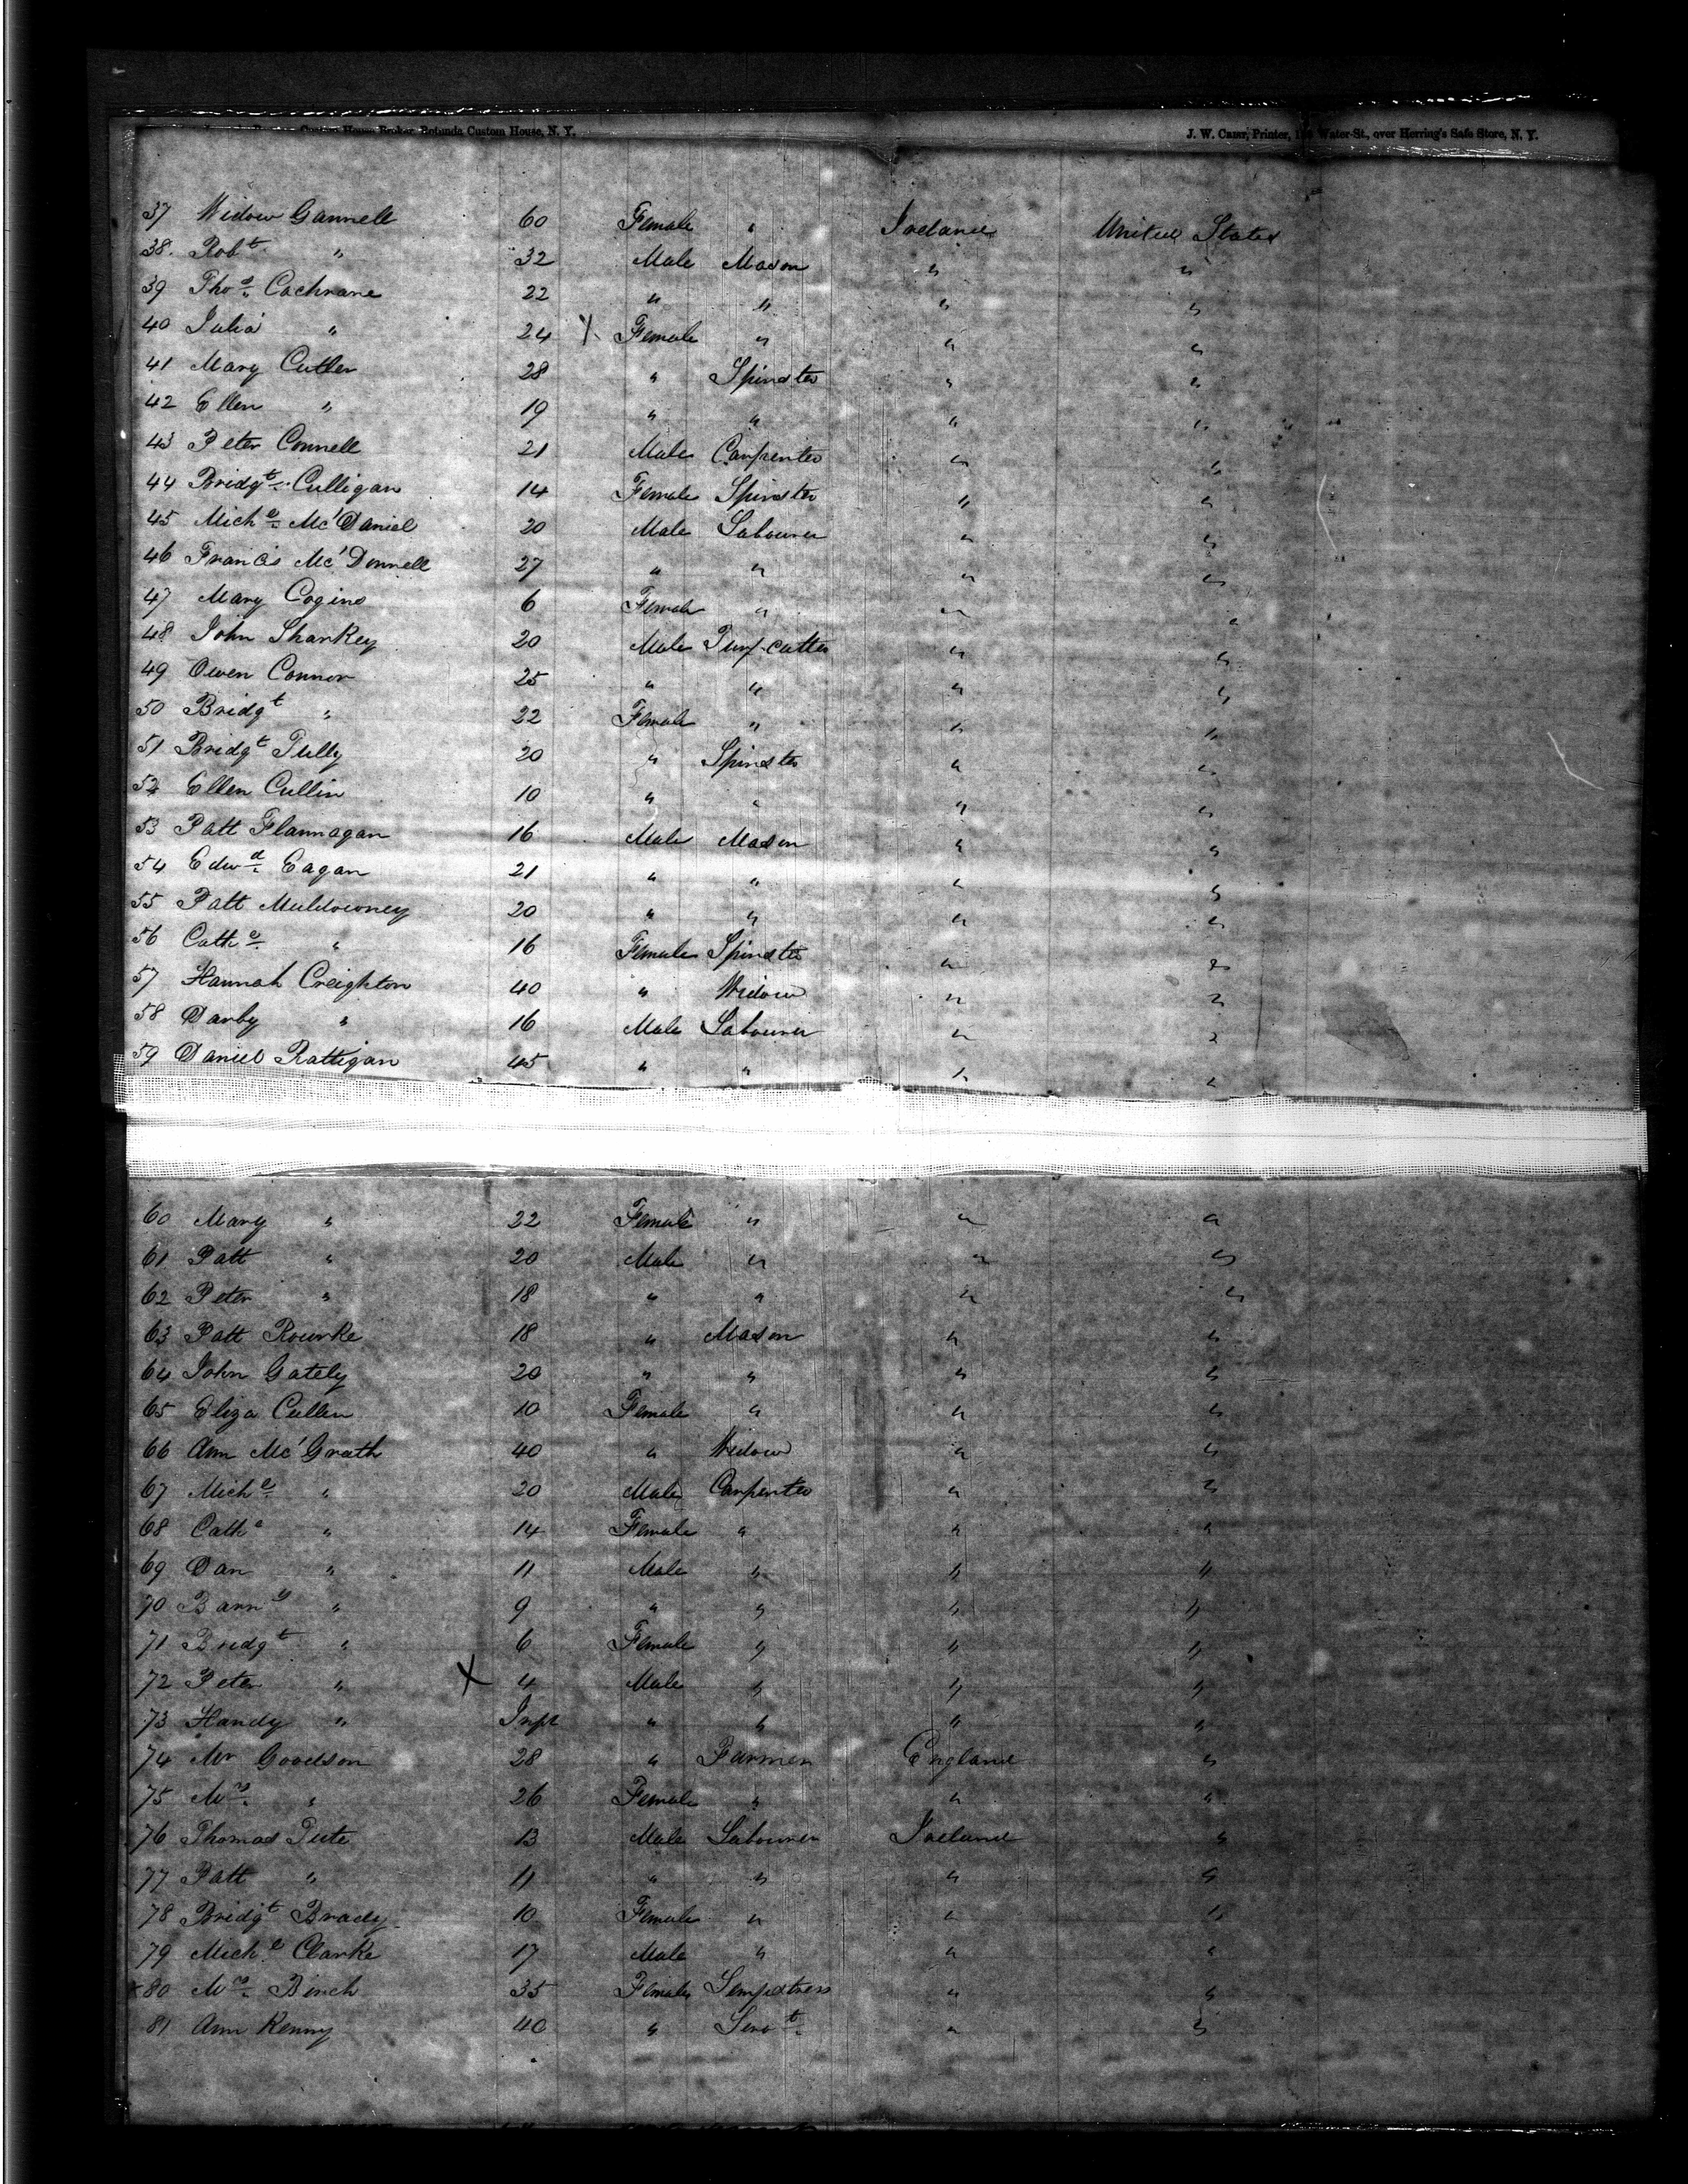 Custom House Broker, Rotunda Custom House, N. Y.
J. W. Carr, Printer, Water-St., over Herring's Safe Store, N. Y.
37 Widow Gannell 60 Female " Ireland United States
38. Robt " 32 Male Mason " "
39 Thos. Cochrane 22 " " " "
40 Julia " 24 X Female " " "
41 Mary Cutler 28 " Spinster " "
42 Ellen " 19 " " " "
43 Peter Connell 21 Male Carpenter " "
44 Bridgt. Culligan 14 Female Spinster " "
45 Michl. Mc'Daniel 20 Male Labourer " "
46 Francis Mc'Donnell 27 " " " "
47 Mary Cogins 6 Female " " "
48 John Sharkey 20 Male Turf-cutter " "
49 Owen Connor 25 " " " "
50 Bridgt " 22 Female " " "
51 Bridgt Tully 20 " Spinster " "
52 Ellen Cullin 10 " " " "
53 Patt Flannagan 16 Male Mason " "
54 Edwd. Eagan 21 " " " "
55 Patt Muldowney 20 " " " "
56 Cathe. " 16 Female Spinster " "
57 Hannah Creighton 40 " Widow " "
58 Darby " 16 Male Labourer " "
59 Daniel Rattigan 45 " " " "
60 Mary " 22 Female " " "
61 Patt " 20 Male " " "
62 Peter " 18 " " " "
63 Patt Rourke 18 " Mason " "
64 John Gately 20 " " " "
65 Eliza Cullen 10 Female " " "
66 Ann Mc'Grath 40 " Widow " "
67 Michl. " 20 Male Carpenter " "
68 Cathe " 14 Female " " "
69 Dan " 11 Male " " "
70 Barny " 9 " " " "
71 Bridgt " 6 Female " " "
72 Peter " X 4 Male " " "
73 Handy " Inft " " " "
74 Mr Goodson 28 " Farmer England "
75 Mrs. " 26 Female " " "
76 Thomas Tute 13 Male Labourer Ireland "
77 Patt " 11 " " " "
78 Bridgt Brady 10 Female " " "
79 Michl Clarke 17 Male " " "
x 80 Mrs. Birch 35 Female Sempstress " "
81 Ann Kenny 40 " Servt. " "